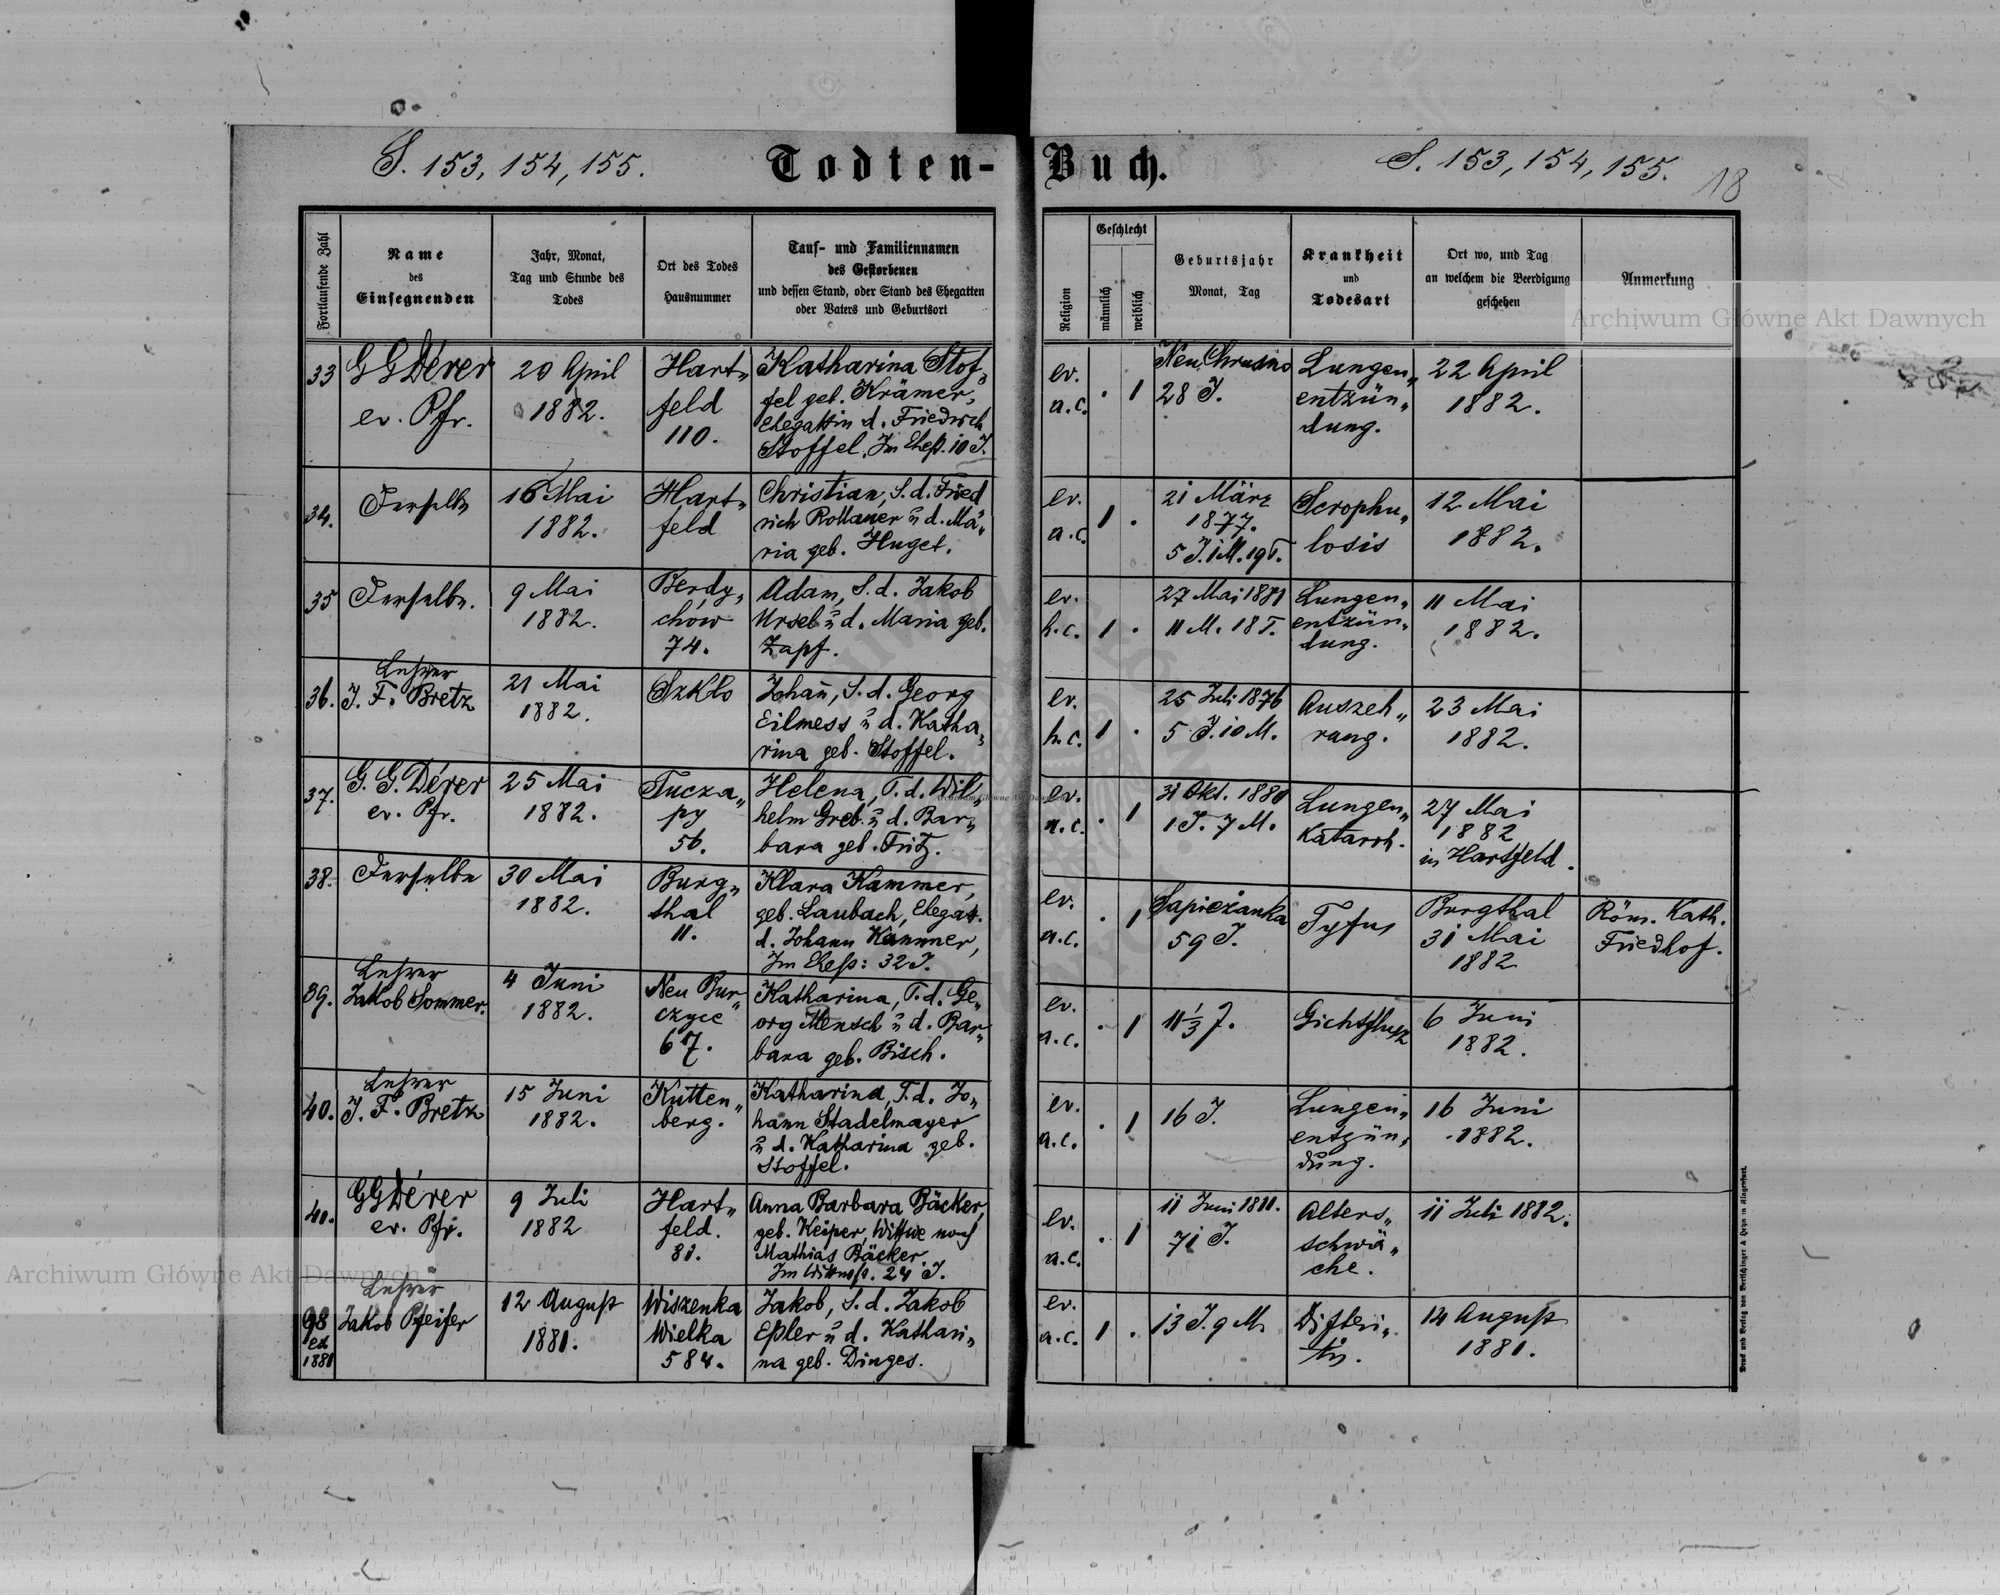 S. 153, 154, 155.
Todten-Buch.
S. 153, 154, 155.
18
Fortlaufende Zahl
Name
des
Einsegnenden
Jahr, Monat,
Tag und Stunde des
Todes
Ort des Todes
Hausnummer
Tauf- und Familiennamen
des Gestorbenen
und dessen Stand, oder Stand des Ehegatten
oder Vaters und Geburtsort
Religion
Geschlecht
männlich
weiblich
Geburtsjahr
Monat, Tag
Krankheit
und
Todesart
Ort wo, und Tag
an welchem die Beerdigung
geschehen
Anmerkung
Archiwum Główne Akt Dawnych
33
G G Dérer
ev. Pfr.
20 April
1882.
Hart„
feld
110.
Katharina Stof„
fel geb. Krämer,
Ehegattin d. Friedrich
Stoffel. Im Ehest. 10 J.
ev.
a.c.
. 1
Neu Chrusno
28 J.
Lungen„
entzün„
dung.
22 April
1882.
34.
Derselbe
16 Mai
1882.
Hart„
feld
Christian, S. d. Fried
rich Rollauer u. d. Ma„
ria geb. Huget.
ev.
a.c.
1 .
21 März
1877.
5 J. 1 M. 19 T.
Scrophu„
losis
12 Mai
1882.
35
Derselbe.
9 Mai
1882.
Berdy„
chów
74.
Adam, S. d. Jakob
Ursel u. d. Maria geb.
Zapf.
ev.
h.c.
1 .
27 Mai 1881
11 M. 18 T.
Lungen„
entzün„
dung.
11 Mai
1882.
36.
Lehrer
J. F. Bretz
21 Mai
1882.
Szkło
Johan̄, S. d. Georg
Eilmess u. d. Katha„
rina geb. Stoffel.
ev.
h.c.
1 .
25 Juli 1876
5 J. 10 M.
Auszeh„
rung.
23 Mai
1882.
37.
G. G. Dérer
ev. Pfr.
25 Mai
1882.
Tucza„
py
56.
Helena, T. d. Wil„
helm Greb u. d. Bar„
bara geb. Fritz.
Archiwum Główne Akt Dawnych
ev.
a.c.
. 1
31 Okt. 1880
1 J. 7 M.
Lungen„
Katarrh.
27 Mai
1882
in Hartfeld.
38.
Derselbe
30 Mai
1882.
Burg„
thal
11.
Klara Kammer,
geb. Laubach, Ehegatt.
d. Johann Kammer,
Im Ehest: 32 J.
ev.
a.c.
. 1
Sapieżanka
59 J.
Tyfus
Burgthal
31 Mai
1882
Röm. Kath.
Friedhof.
39.
Lehrer
Jakob Sommer.
4 Juni
1882.
Neu Bur„
czyce
67.
Katharina, T. d. Ge„
org Mensch u. d. Bar„
bara geb. Bisch.
ev.
a.c.
. 1
11 1/3 J.
Gichtfluss
6 Juni
1882.
40.
Lehrer
J. F. Bretz
15 Juni
1882.
Kutten„
berg.
Katharina, T. d. Jo„
hann Stadelmayer
u. d. Katharina geb.
Stoffel.
ev.
a.c.
. 1
16 J.
Lungen„
entzün„
dung.
16 Juni
1882.
41.
G G Dérer
ev. Pfr.
9 Juli
1882
Hart„
feld.
81.
Anna Barbara Bäcker,
geb. Keiper, Wittwe nach
Mathias Bäcker.
Im Wittwst. 24 J.
ev.
a.c.
. 1
11 Juni 1811.
71 J.
Alters„
schwä„
che.
11 Juli 1882.
98
ex
1881
Lehrer
Jakob Pfeifer
12 August
1881.
Wiszenka
Wielka
584.
Jakob, S. d. Jakob
Epler u. d. Kathari„
na geb. Dinges.
ev.
a.c.
1 .
13 J. 9 M.
Difteri„
tis.
14 August
1881.
Druck und Verlag von Bertschinger & Heyn in Klagenfurt.
Archiwum Główne Akt Dawnych